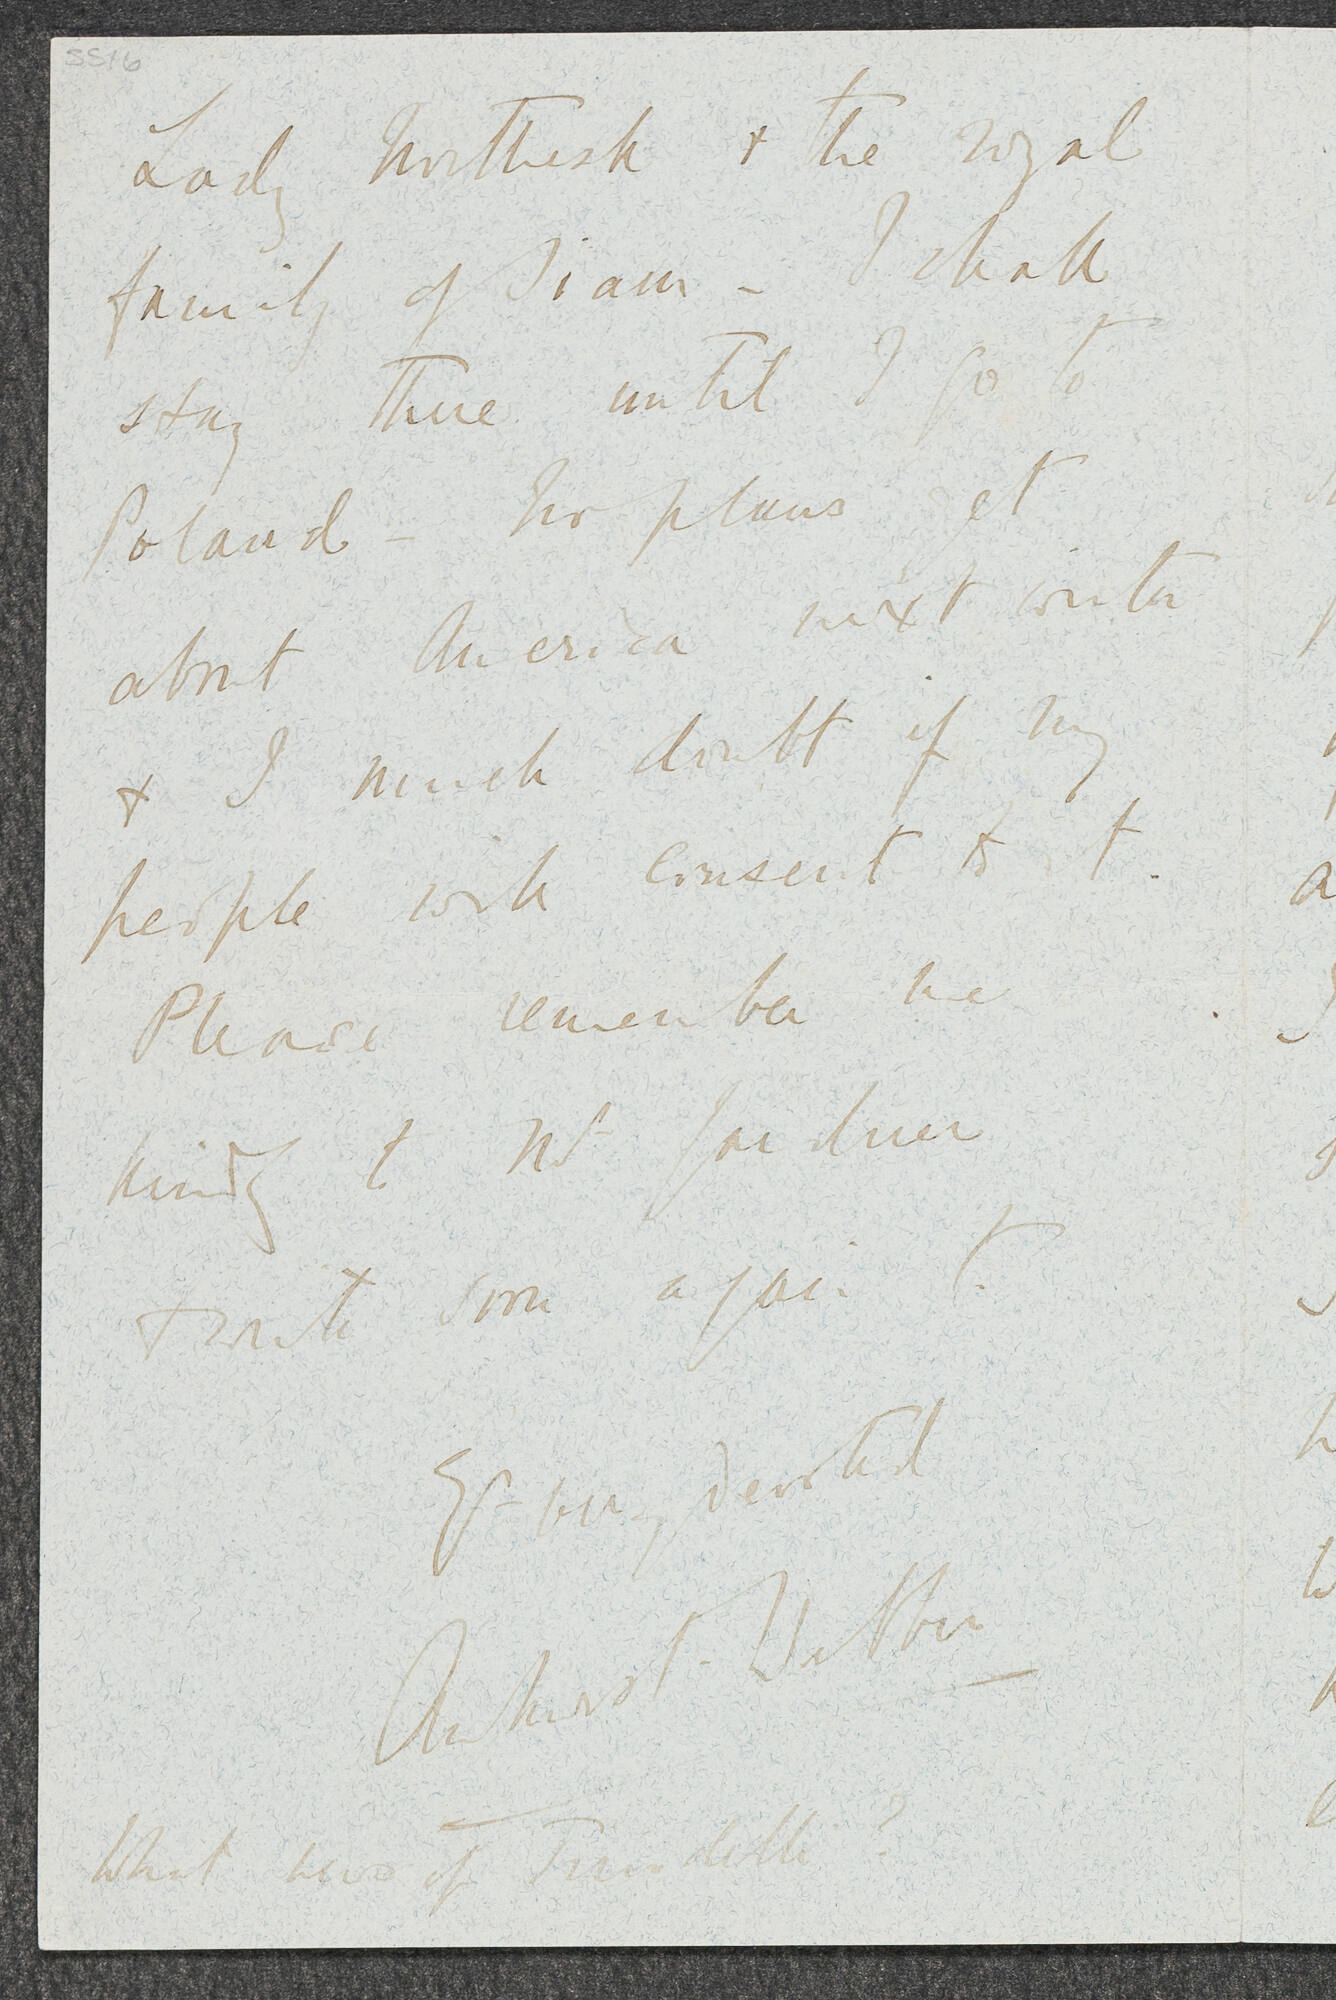 SS16
Lady Northesk & the royal
family of Siam - I shall
stay there until I go to
Poland - No plans yet
about America next winter
& I much doubt if my
people will consent to it.
Please remember me
kindly to Mr Gardner
& write soon again to
Yr very devoted
Amherst Webber
What news of Tirindelli?